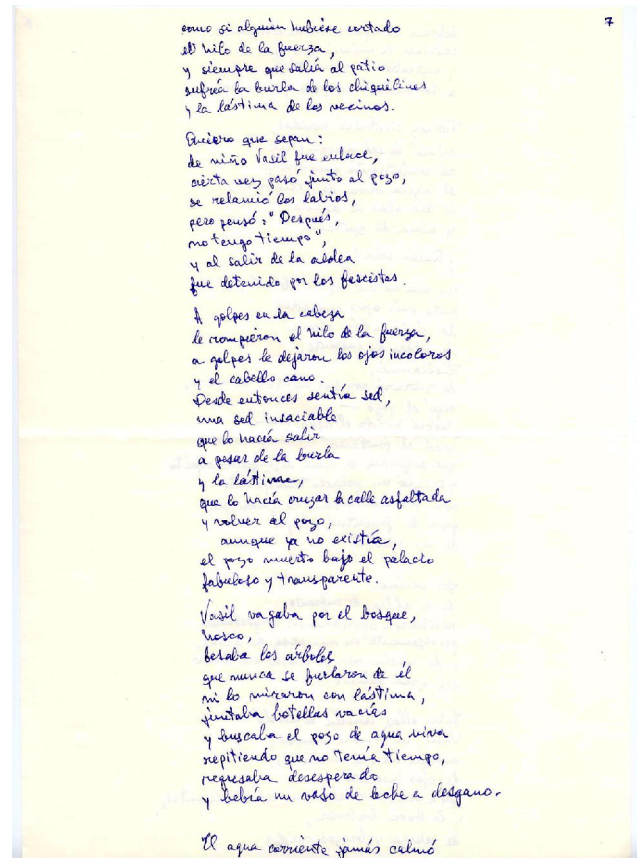 7
como si alguien hubiese cortado
el hilo de la fuerza,
y siempre que salía al patio
sufría la burla de los chiquilines
y la lástima de los vecinos.
Quiero que sepan:
de niño Vasil fue enlace,
cierta vez pasó junto al pozo,
se relamió los labios,
pero pensó: "Después,
no tengo tiempo",
y al salir de la aldea
fue detenido por los fascistas.
A golpes en la cabeza
le rompieron el hilo de la fuerza,
a golpes le dejaron los ojos incoloros
y el cabello cano.
Desde entonces sentía sed,
una sed insaciable
que lo hacía salir
a pesar de la burla
y la lástima,
que lo hacía cruzar la calle asfaltada
y volver al pozo,
aunque ya no existía,
el pozo muerto bajo el palacio
fabuloso y transparente.
Vasil vagaba por el bosque,
hosco,
besaba los árboles
que nunca se burlaron de él
ni lo miraron con lástima,
juntaba botellas vacías
y buscaba el pozo de agua viva
repitiendo que no tenía tiempo,
regresaba desesperado
y bebía un vaso de leche a desgano.
El agua corriente jamás calmó